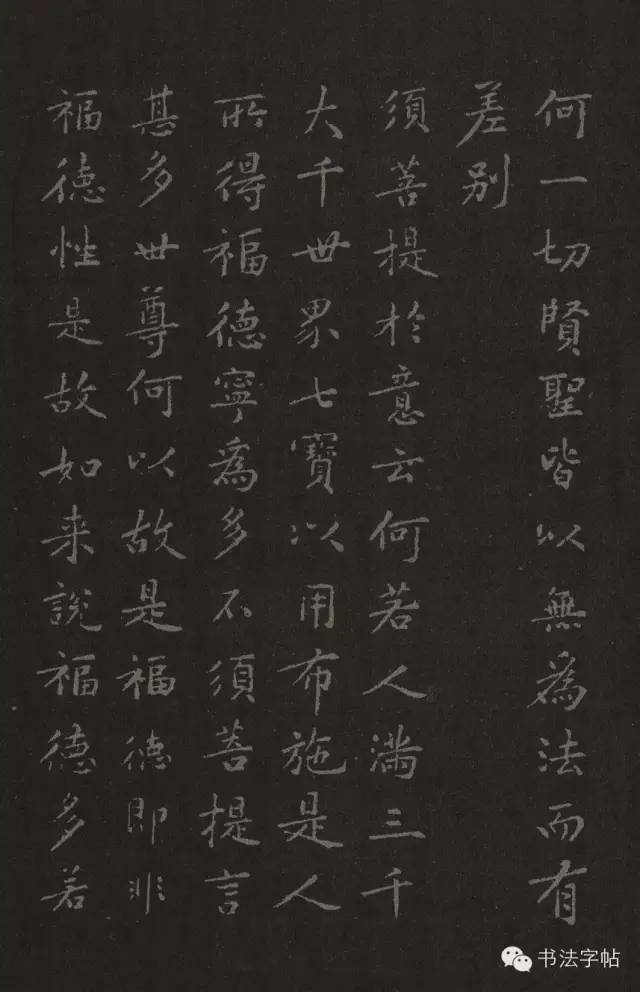 何一切賢聖皆以無為法而有
差别
須菩提於意云何若人滿三千
大千世界七寶以用布施是人
所得福德寧為多不須菩提言
甚多世尊何以故是福德即非
福德性是故如来說福德多若
书法字帖